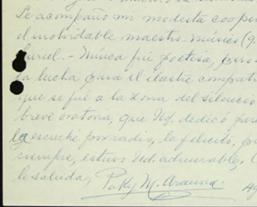 Le acompaño mi modesta coope
el inolvidable maestro-músico (q
Nunca fui poetisa, pero
la lucha para el ilustre compat
que se fué a la zona del silencio
breve oratoria, que Ud. dedicó par
la escuché por radio, le felicito, por
siempre, estuvo Ud. admirable,
le saluda, Patty M. Arauna